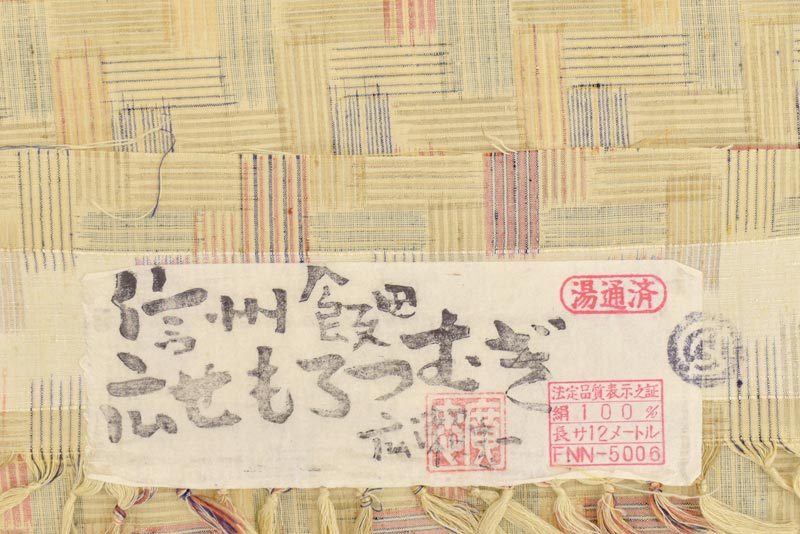 信州 飯田
広せもろつむぎ
湯通済
法定品質表示之証
絹100%
長サ12メートル
FNN-5006